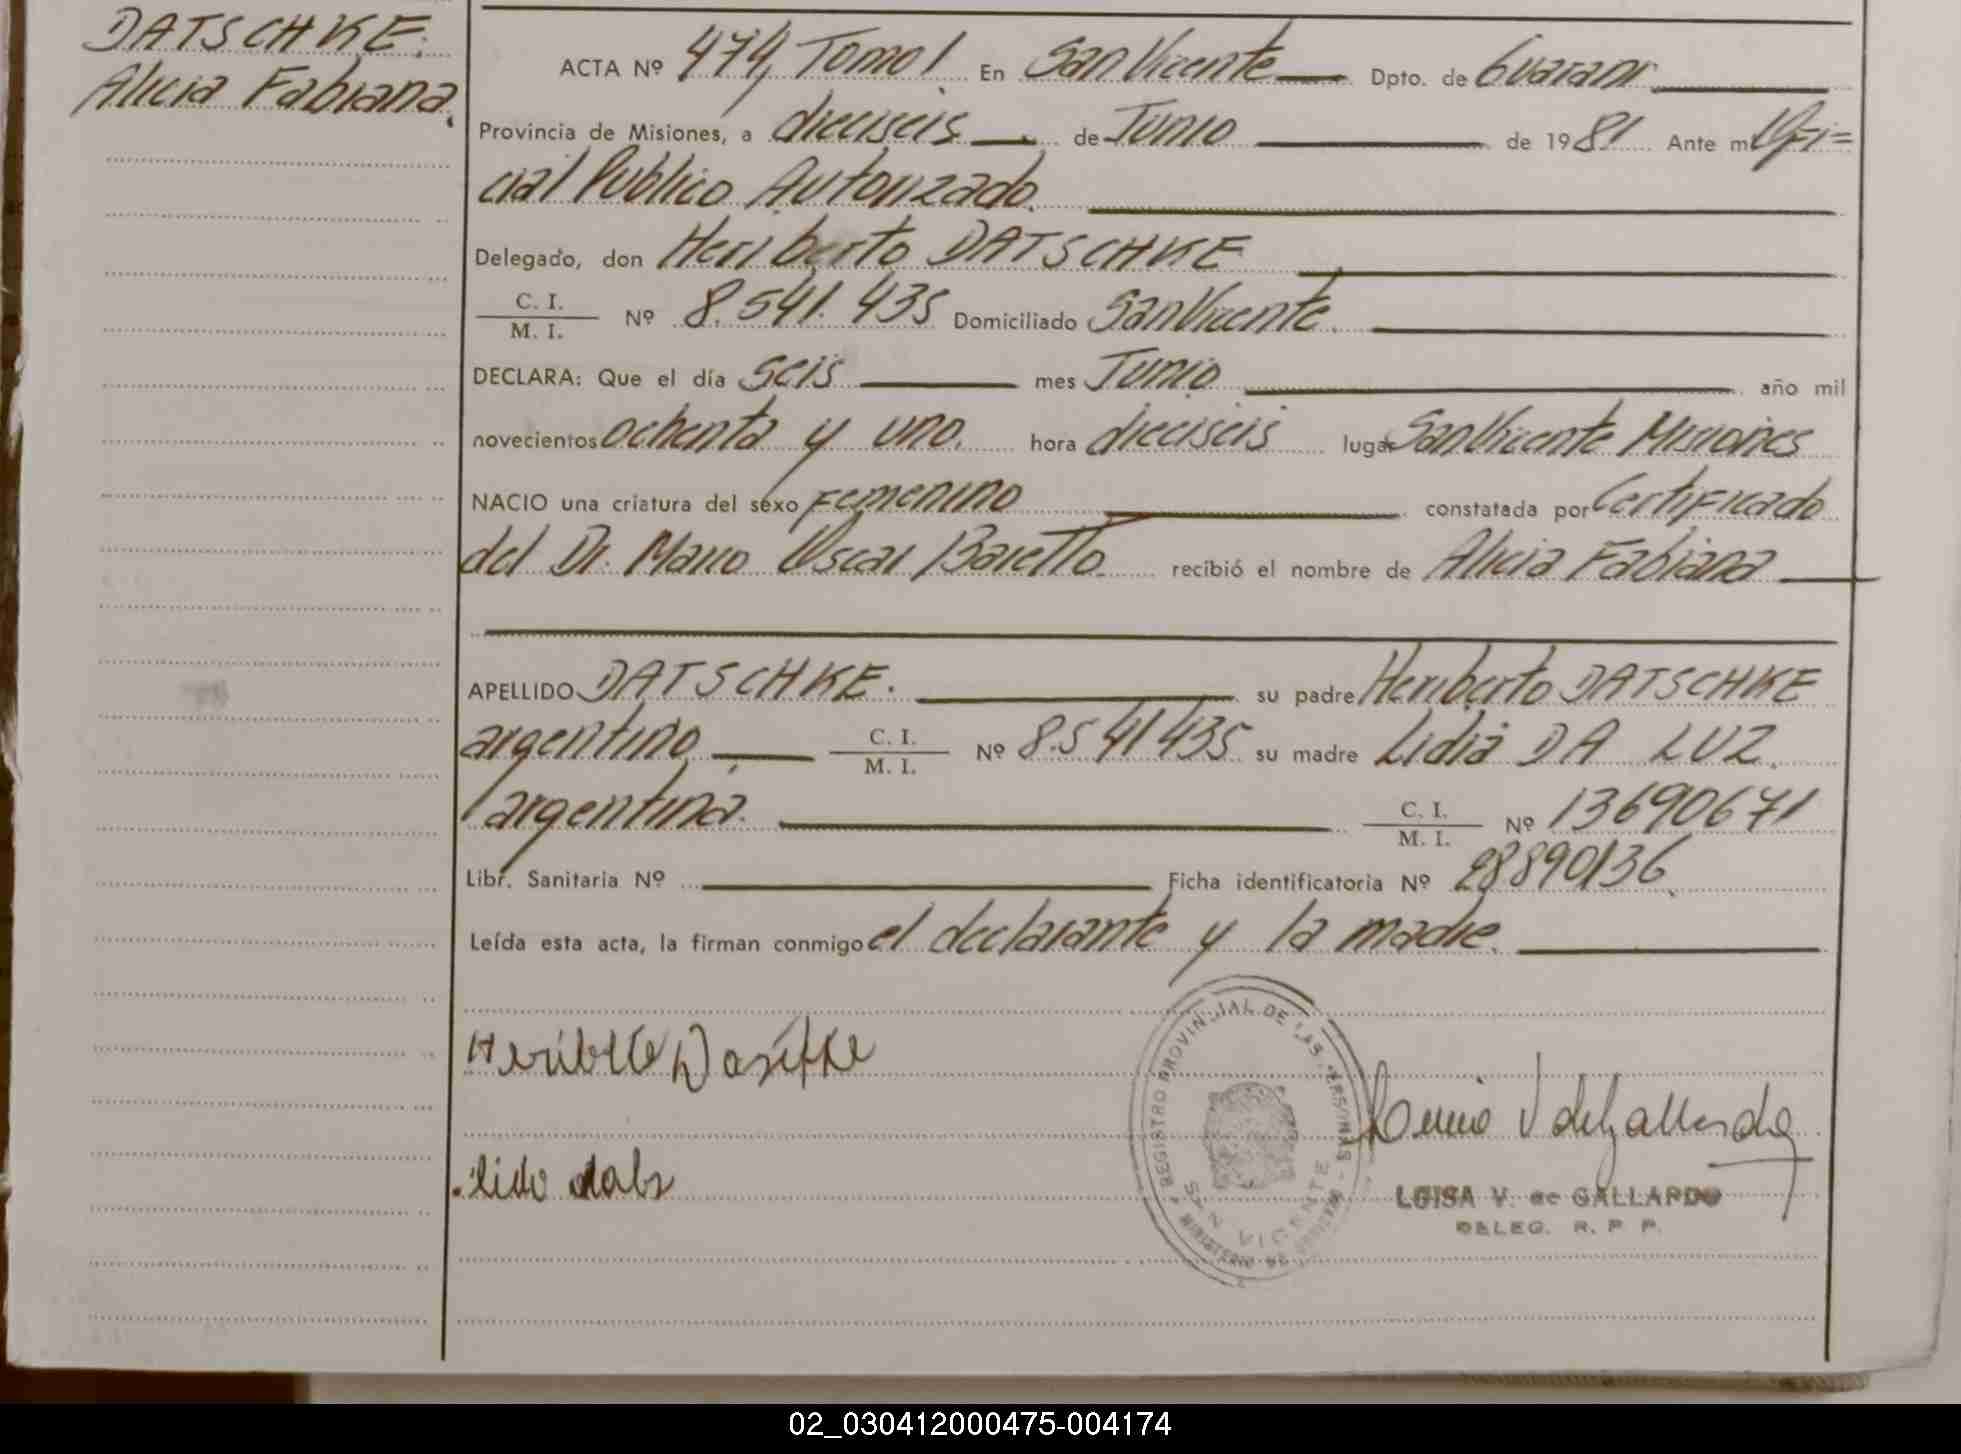 DATSCHKE.
Alicia Fabiana.
ACTA Nº 474, Tomo I. En San Vicente Dpto. de Guarani
Provincia de Misiones, a dieciseis de Junio de 1981 Ante mi Ofi=
cial Publico Autorizado.
Delegado, don Heriberto DATSCHKE
C. I.
M. I. Nº 8.541.435 Domiciliado San Vicente.
DECLARA: Que el día Seis mes Junio año mil
novecientos ochenta y uno. hora dieciseis lugar San Vicente Misiones
NACIO una criatura del sexo Femenino constatada por Certificado
del Dr. Mario Oscar Baretto. recibió el nombre de Alicia Fabiana
APELLIDO DATSCHKE. su padre Heriberto DATSCHKE
argentino C. I.
M. I. Nº 8.541435 su madre Lidia DA LUZ.
argentina. C. I.
M. I. Nº 13690671
Libr. Sanitaria Nº Ficha identificatoria Nº 28890136.
Leída esta acta, la firman conmigo el declarante y la madre.
REGISTRO PROVINCIAL DE LAS PERSONAS - MISIONES
SAN VICENTE
LUISA V. de GALLARDO
DELEG. R. P. P.
02_030412000475-004174